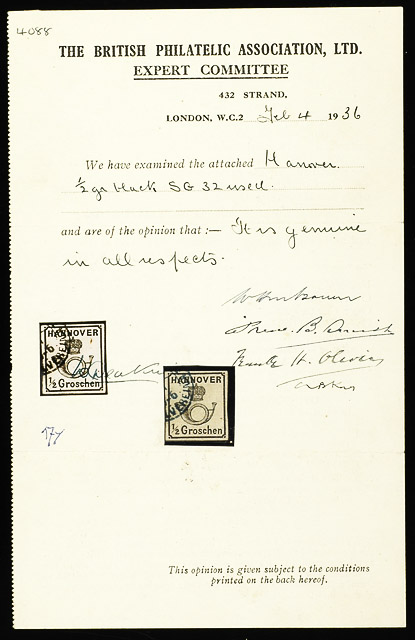 4088
THE BRITISH PHILATELIC ASSOCIATION, LTD.
EXPERT COMMITTEE
432 STRAND,
LONDON, W.C.2 Feb 4 1936
We have examined the attached Hanover.
½ gr black SG 32 used.
and are of the opinion that :— It is genuine
in all respects.
B.
H. Oliver
HANNOVER
½ Groschen
HANNOVER
½ Groschen
This opinion is given subject to the conditions
printed on the back hereof.